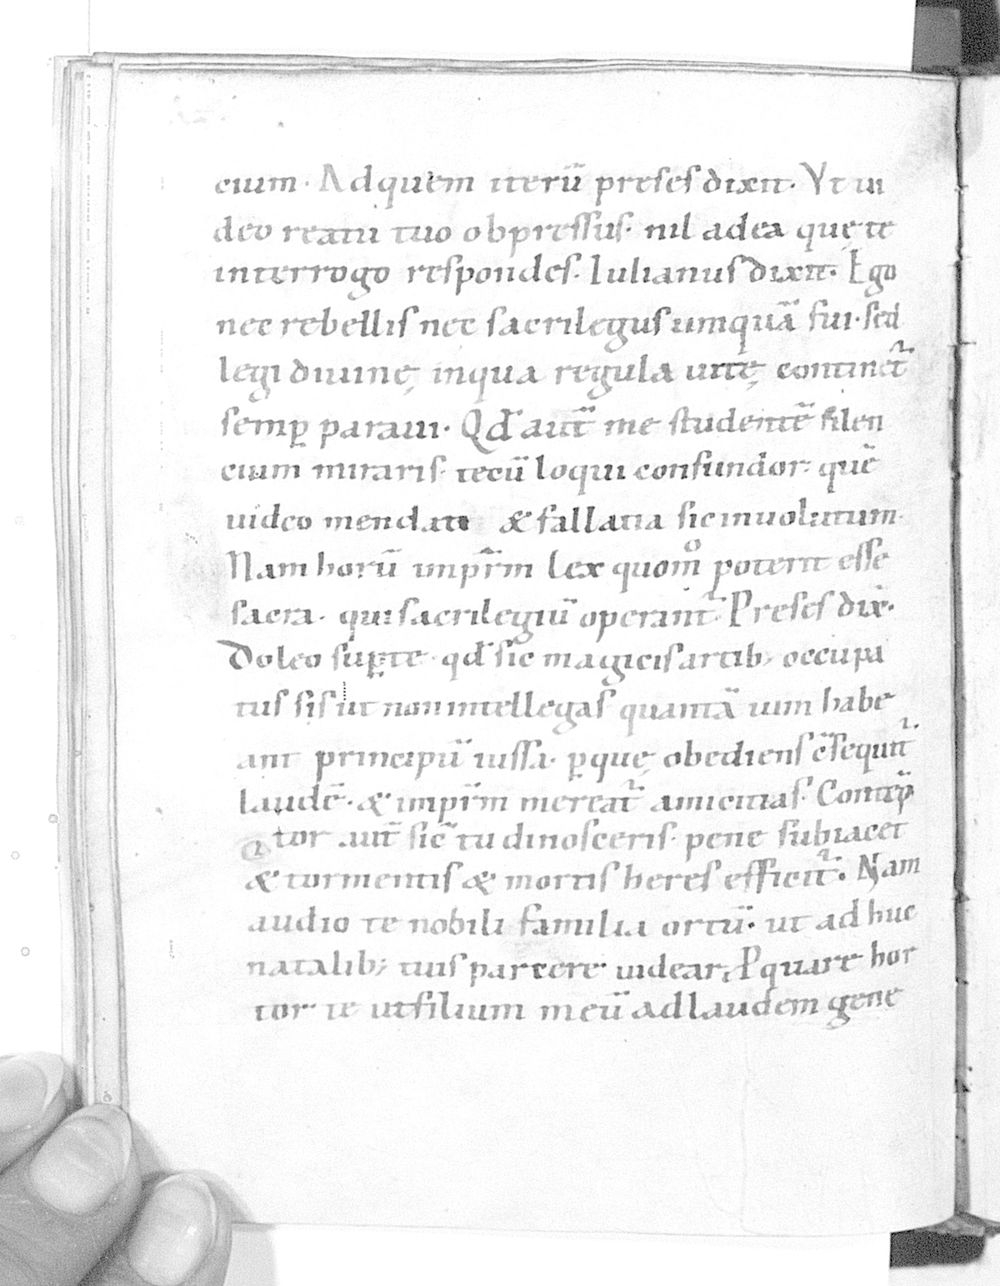 cium. Ad quem iterū preses dixit. Vt ui
deo reatu tuo obpressus. nil ad ea quę te
interrogo respondes. Iulianus dixit. Ego
nec rebellis nec sacrilegus umquā fui. sed
legi diuinę in qua regula uitę continet᷑
semp̱ paraui. Qđ aut̄ me studentē silen
cium miraris. tecū loqui confundor. quē
uideo mendati & fallatia sic inuolutum.
Nam horū imprīm lex quom̊ poterit esse
sacra. qui sacrilegiū operant᷑. Preses dix̄.
Doleo sup̱ te. qđ sic magicis artib; occupa
tus sis ut non intellegas quantā uim habe
ant principū iussa. p̱ quę obediens c̄sequit᷑
laudē. & imprīm mereat᷑ amicitias. Contēp
tor aut̄ sic̄ tu dinosceris. pene subiacet
& tormentis & mortis heres efficit᷑. Nam
audio te nobili familia ortū. ut adhuc
natalib; tuis parcere uidear. P quare hor
tor te ut filium meū ad laudem gene